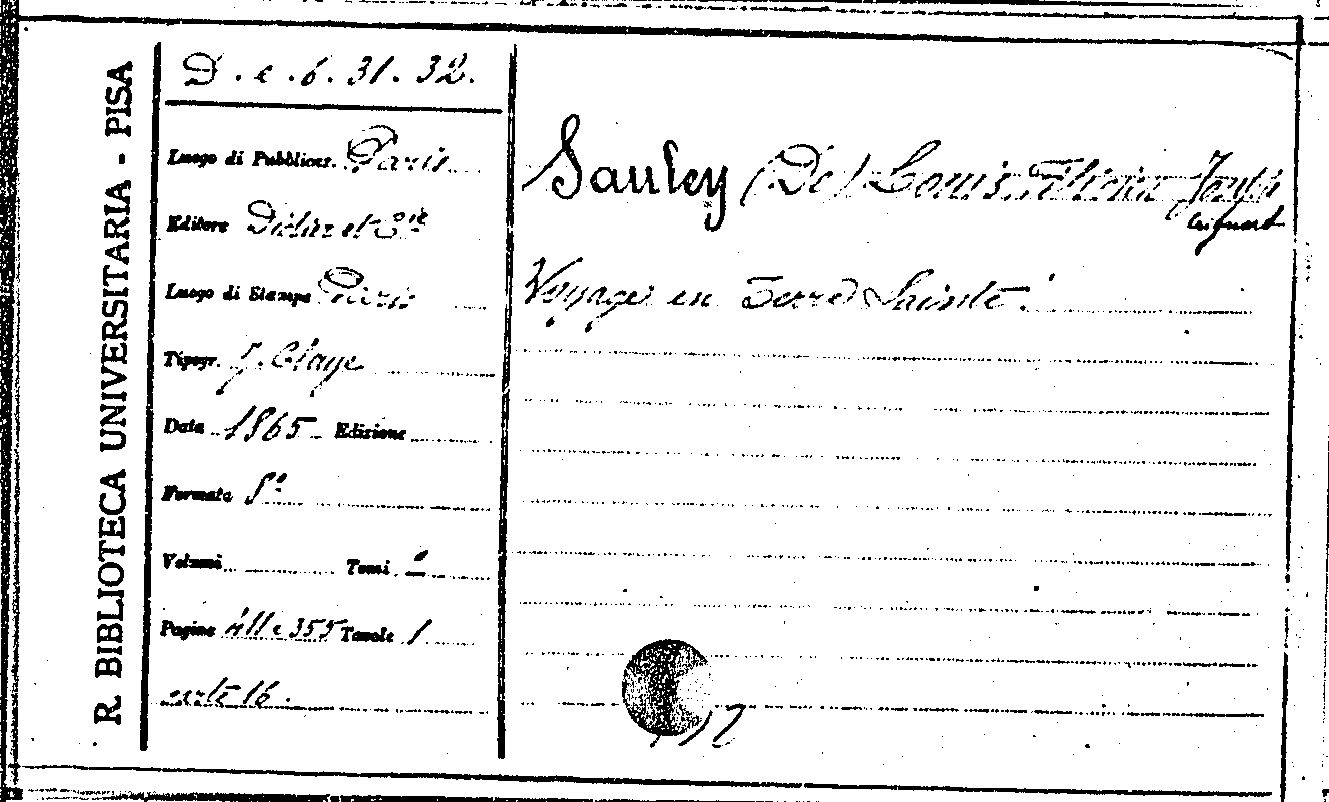 R. BIBLIOTECA UNIVERSITARIA - PISA
D. c. 6. 31. 32.
Luogo di Pubblicaz. Paris
Editore Didier et Cie
Luogo di Stampa Paris
Tipogr. J. Claye
Data 1865 Edizione
Formato 8º
Volumi Tomi
Pagine 411 e 355 Tavole 1
carte 16.
Saulcy (De) Louis Joseph
Voyage en Terre Sainte.